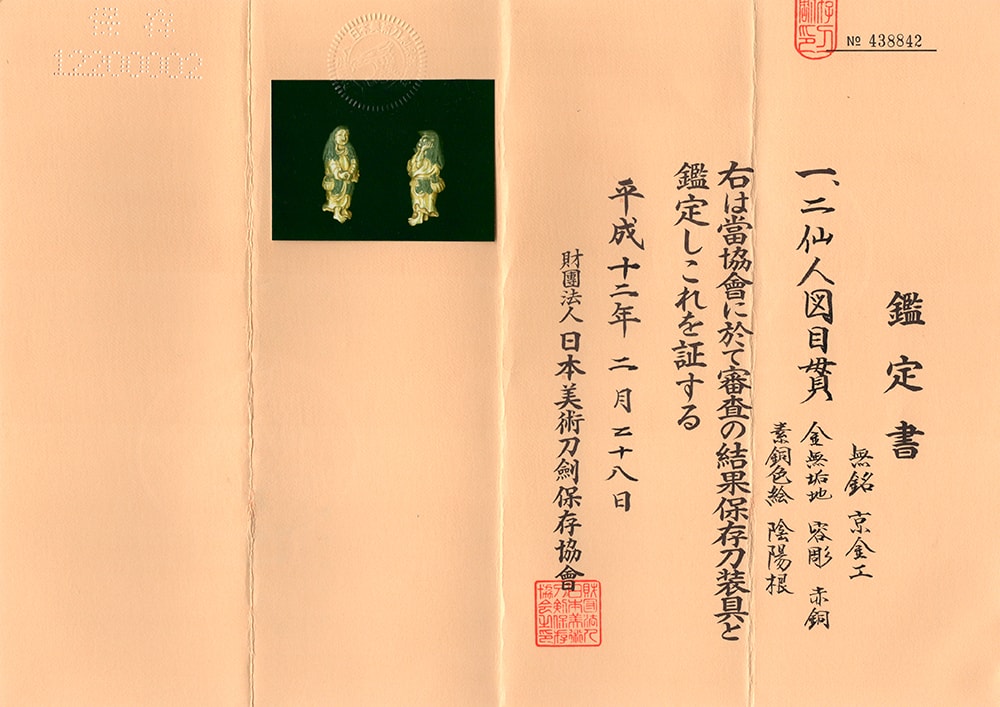 鑑定書
一、二仙人図目貫
無銘 京金工
金無垢地 容彫 赤銅
素銅色絵 陰陽根
右は當協會に於て審査の結果保存刀装具と
鑑定しこれを証する
平成十二年 二月二十八日
財團法人日本美術刀劍保存協會
№ 438842
保存
12200002